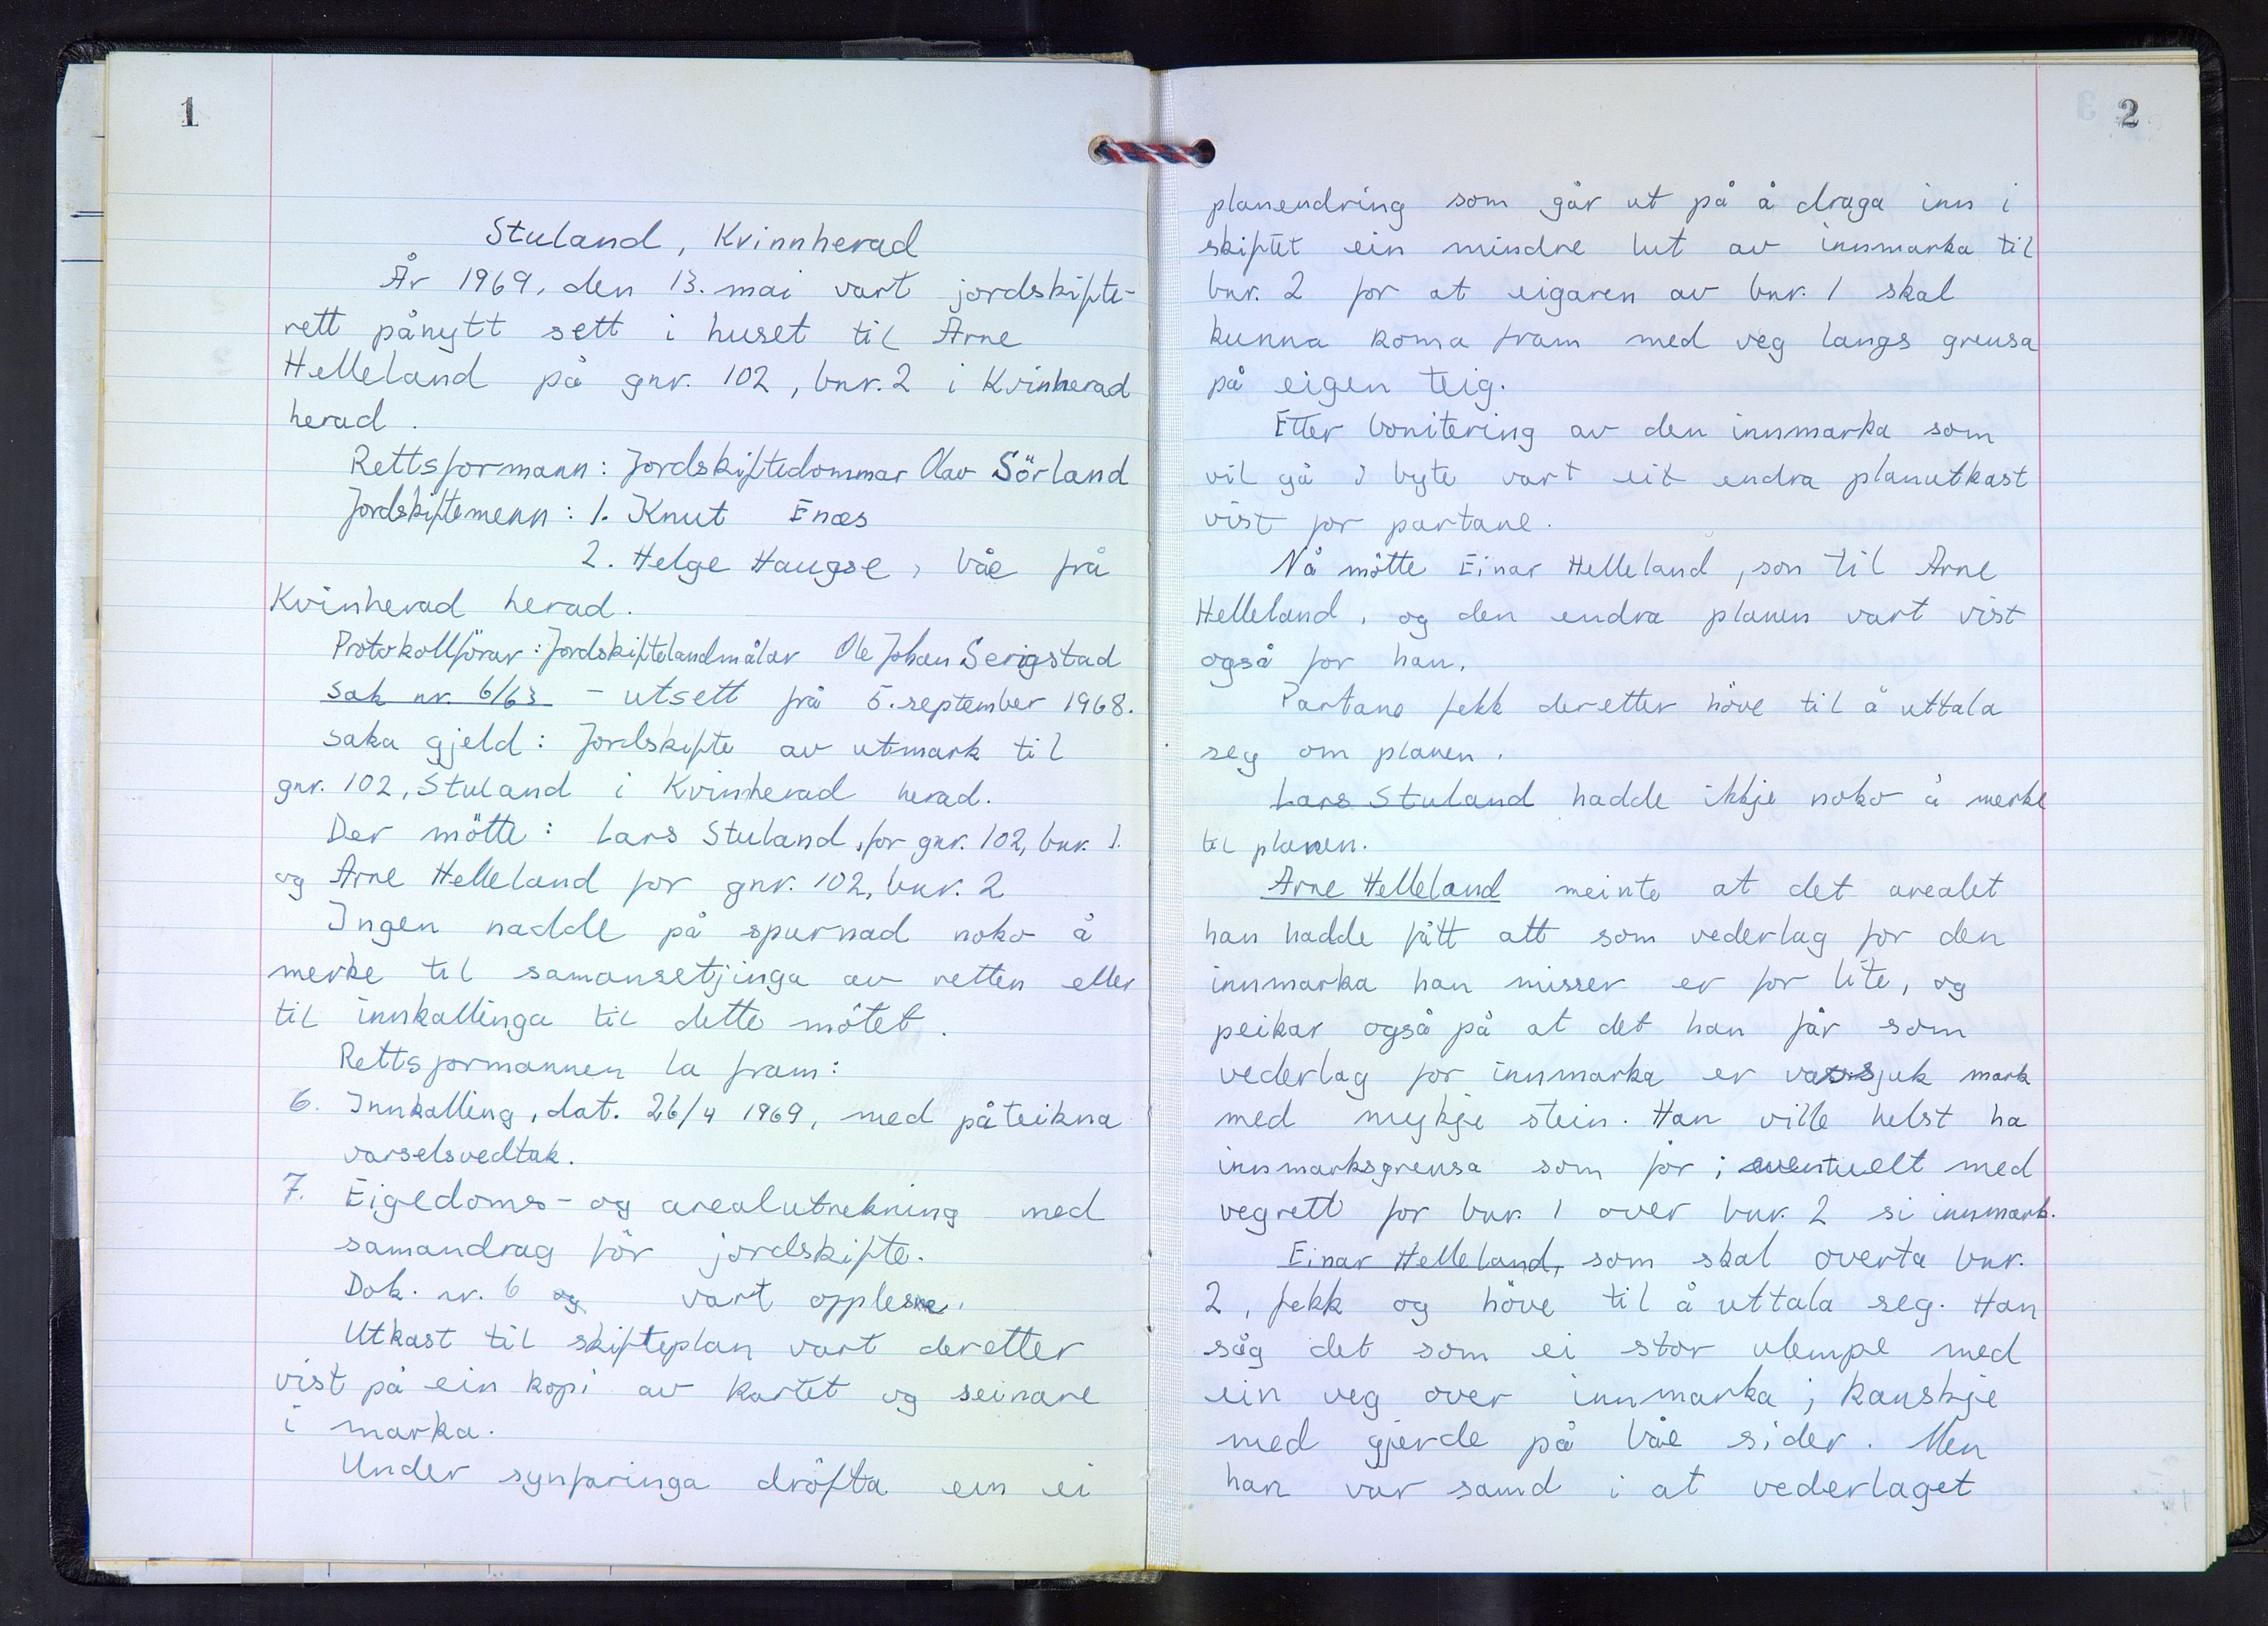 1
Stuland, Kvinnherad
År 1969, den 13. mai vart jordskifte-
rett pånytt sett i huset til Arne
Helleland på gnr. 102, bnr. 2 i Kvinherad
herad.
Rettsformann: Jordskiftedommar Olav Sörland
Jordskiftemenn: 1. Knut Enæs
2. Helge Haugse, båe frå
Kvinherad herad.
Protokollförar: Jordskiftelandmålar Ole Johan Serigstad
sak nr. 6/63 - utsett frå 5. september 1968.
saka gjeld: Jordskifte av utmark til
gnr. 102, Stuland i Kvinnherad herad.
Der mötte: Lars Stuland, for gnr. 102, bnr. 1.
og Arne Helleland for gnr. 102, bnr. 2
Ingen hadde på spurnad noko å
merke til samansetjinga av retten eller
til innkallinga til dette mötet.
Rettsformannen la fram:
6. Innkalling, dat. 26/4 1969, med påteikna
varselsvedtak.
7. Eigedoms- og arealutrekning med
samandrag för jordskifte.
Dok. nr. 6 og vart opplesne.
Utkast til skifteplan vart deretter
vist på ein kopi av kartet og seinare
i marka.
Under synfaringa dröfta ein ei
2
planendring som går ut på å draga inn i
skiftet ein mindre lut av innmarka til
bnr. 2 for at eigaren av bnr. 1 skal
kunna koma fram med veg langs grensa
på eigen teig.
Etter bonitering av den innmarka som
vil gå i byte vart eit endra planutkast
vist for partane.
Nå mötte Einar Helleland, son til Arne
Helleland, og den endra planen vart vist
også for han.
Partane fekk deretter höve til å uttala
seg om planen.
Lars Stuland hadde ikkje noko å merke
til planen.
Arne Helleland meinte at det arealet
han hadde fått att som vederlag for den
innmarka han misser er for lite, og
peikar også på at det han får som
vederlag for innmarka er vasssjuk mark
med mykje stein. Han ville helst ha
innmarksgrensa som för; eventuelt med
vegrett for bnr. 1 over bnr. 2 si innmark.
Einar Helleland, som skal overta bnr.
2, fekk og höve til å uttala seg. Han
såg det som ei stor ulempe med
ein veg over innmarka; kanskje
med gjerde på båe sider. Men
han var samd i at vederlaget